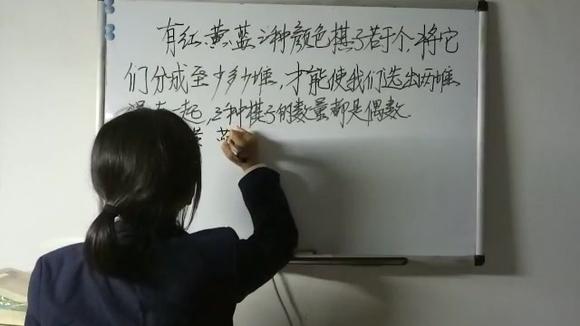 有红、黄、蓝三种颜色棋子若干个,将它
们分成至少多少堆,才能使我们选出两堆
一起,三种棋子的数量都是偶数.